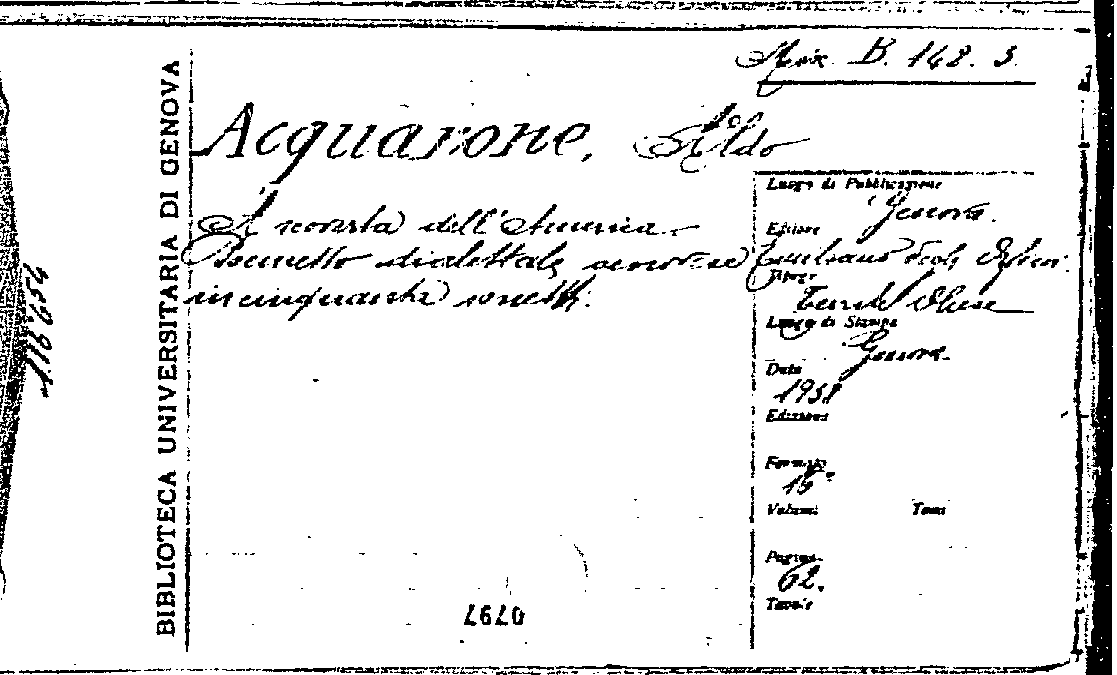 Mix. B. 148. 3.
Acquarone, Aldo
A scoverta dell'America.
Poemetto dialettale genovese
in cinquanta sonetti.
Luogo di Pubblicazione
Genova.
Editore
degli
Tipogr.
Luogo di Stampa
Genova.
Data
1938
Edizione
Formato
16°
Volumi Tomi
Pagine
62.
Tavole
BIBLIOTECA UNIVERSITARIA DI GENOVA
116654
0797